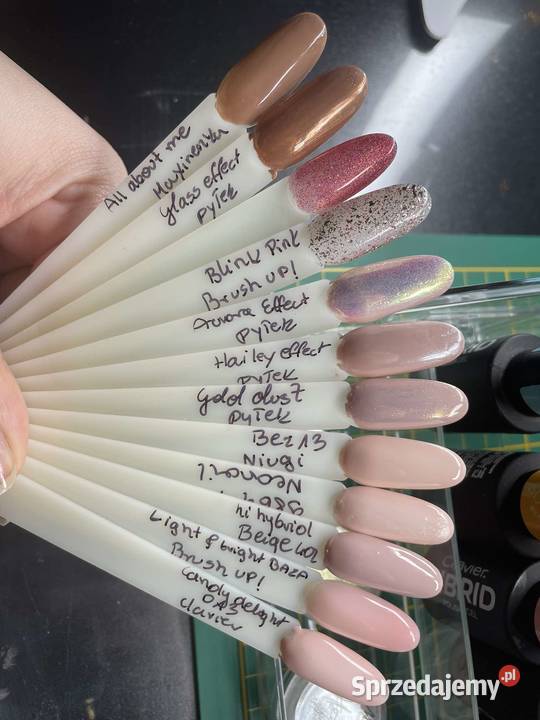 All about me
glass effect
pyłek
Blink Pink
Brush up!
Aurora Effect
pyłek
Hailey effect
pyłek
Gold dust
pyłek
Beż 13
Niugi
Neonail
hi hybrid
Beige 402
Light & bright BAZA
Brush up!
Candy delight
Clavier
clavier.
BRID
Sprzedajemy.pl